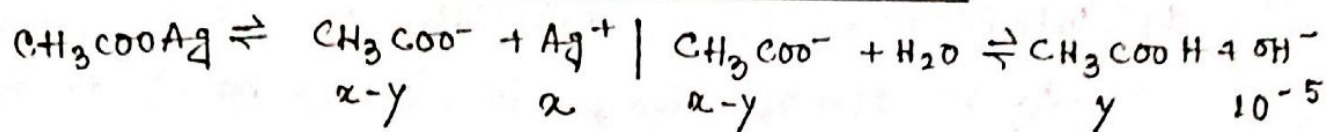 CH₃COOAg ⇌ CH₃COO⁻ + Ag⁺ | CH₃COO⁻ + H₂O ⇌ CH₃COOH + OH⁻
x-y x x-y y 10⁻⁵